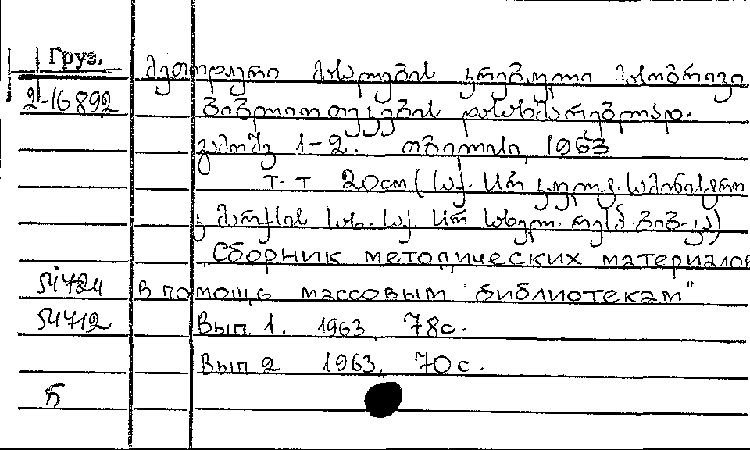 Груз.
მეთოდური მასალების კრებული მასობრივი
2-16892
ბიბლიოთეკების დასახმარებლად.
გამოშვ 1-2. თბილისი, 1963
т. т 20см (საქ. სსრ კულტ. სამინისტრო
კ. მარქსის სახ. საქ. სსრ სახელ. რესპ. ბიბ-კა)
Сборник методических материалов
54724 в помощь массовым библиотекам"
54712 Вып 1. 1963, 78с.
Вып 2 1963, 70с.